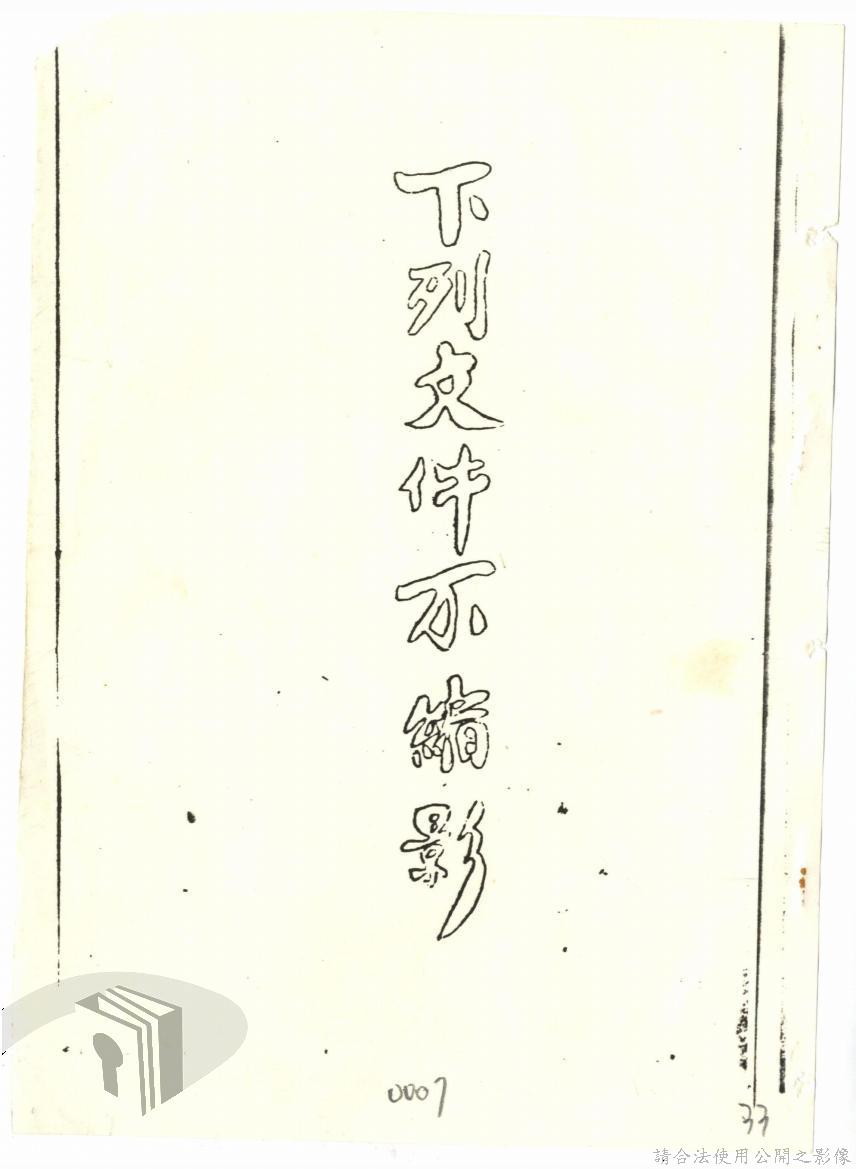 下列文件不縮影
0007
33
請合法使用公開之影像